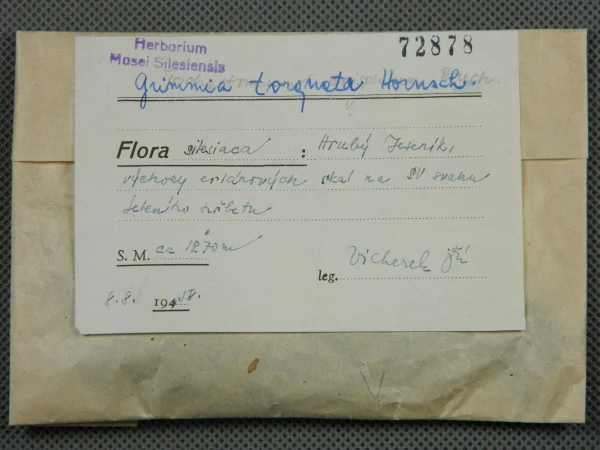 Herbarium
72878
Mosei Silesiensis
Grimmia torquata Hornsch.
Flora silesiaca : Hrubý Jeseník,
výchozy erlánových skal na SV svahu
Jeleního hřbetu
S. M. ca 1270m
leg. Vicherek Jiří
8.8. 1958.